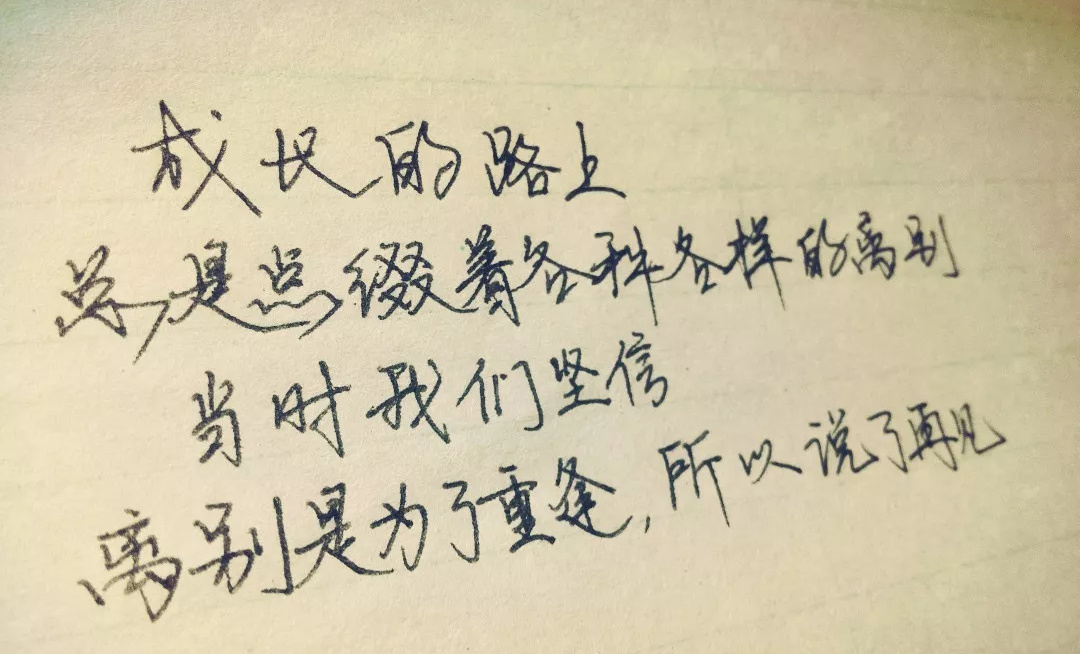 成长的路上
总是点缀着各种各样的离别
当时我们坚信
离别是为了重逢,所以说了再见